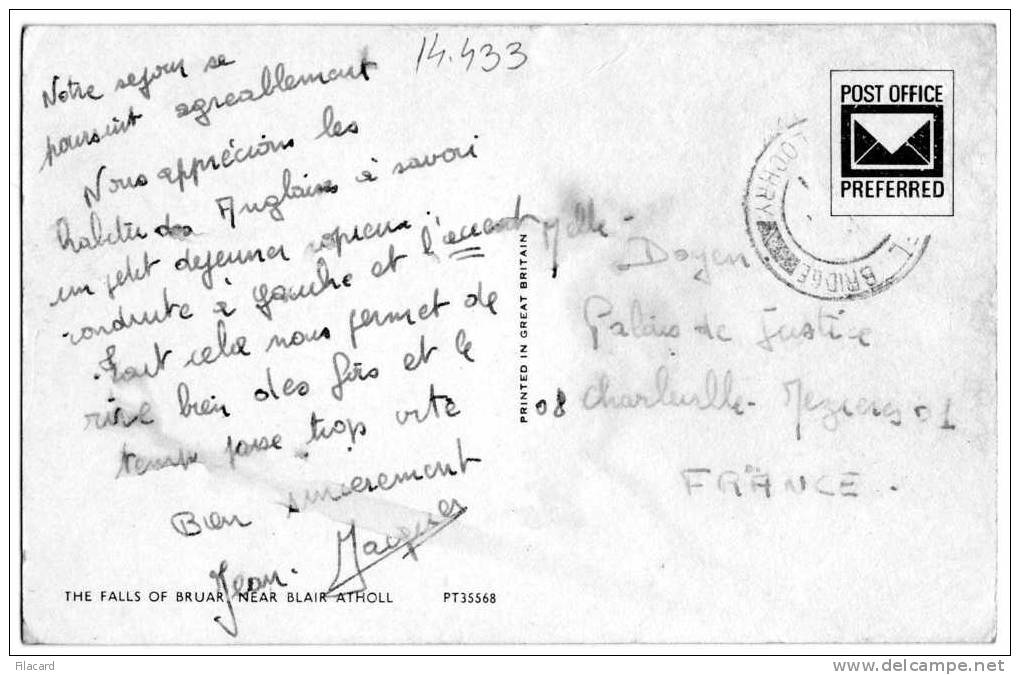 14.433
Notre sejour se
poursuit agreablement
Nous apprécions les
habitudes Anglaises à savoir
un petit dejeuner copieux
conduite à gauche et l'accent
Tout cela nous permet de
rire bien des fois et le
temps passe trop vite
Bien sincerement
Jean-Jacques
THE FALLS OF BRUAR, NEAR BLAIR ATHOLL PT35568
PRINTED IN GREAT BRITAIN
POST OFFICE
PREFERRED
BRIDGE
Melle Doyen
Palais de Justice
08 Charleville-Mezieres 01
FRANCE.
Filacard
www.delcampe.net